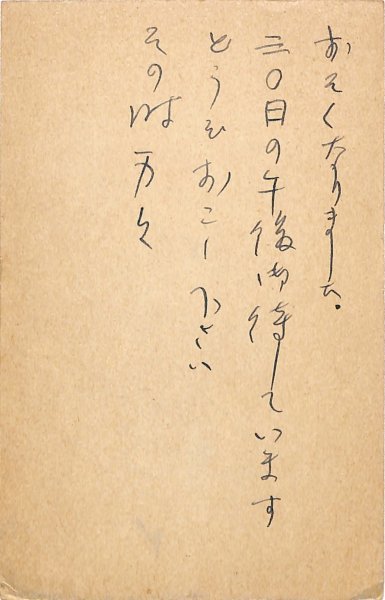 おそくなりました。
三〇日の午後御待ちしています
どうぞおこし下さい
その時 万々